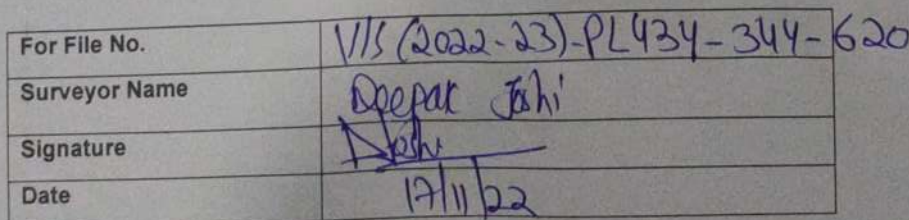 For File No. VIS (2022-23)-PL434-344-620
Surveyor Name Deepak Joshi
Signature DJoshi
Date 17/11/22